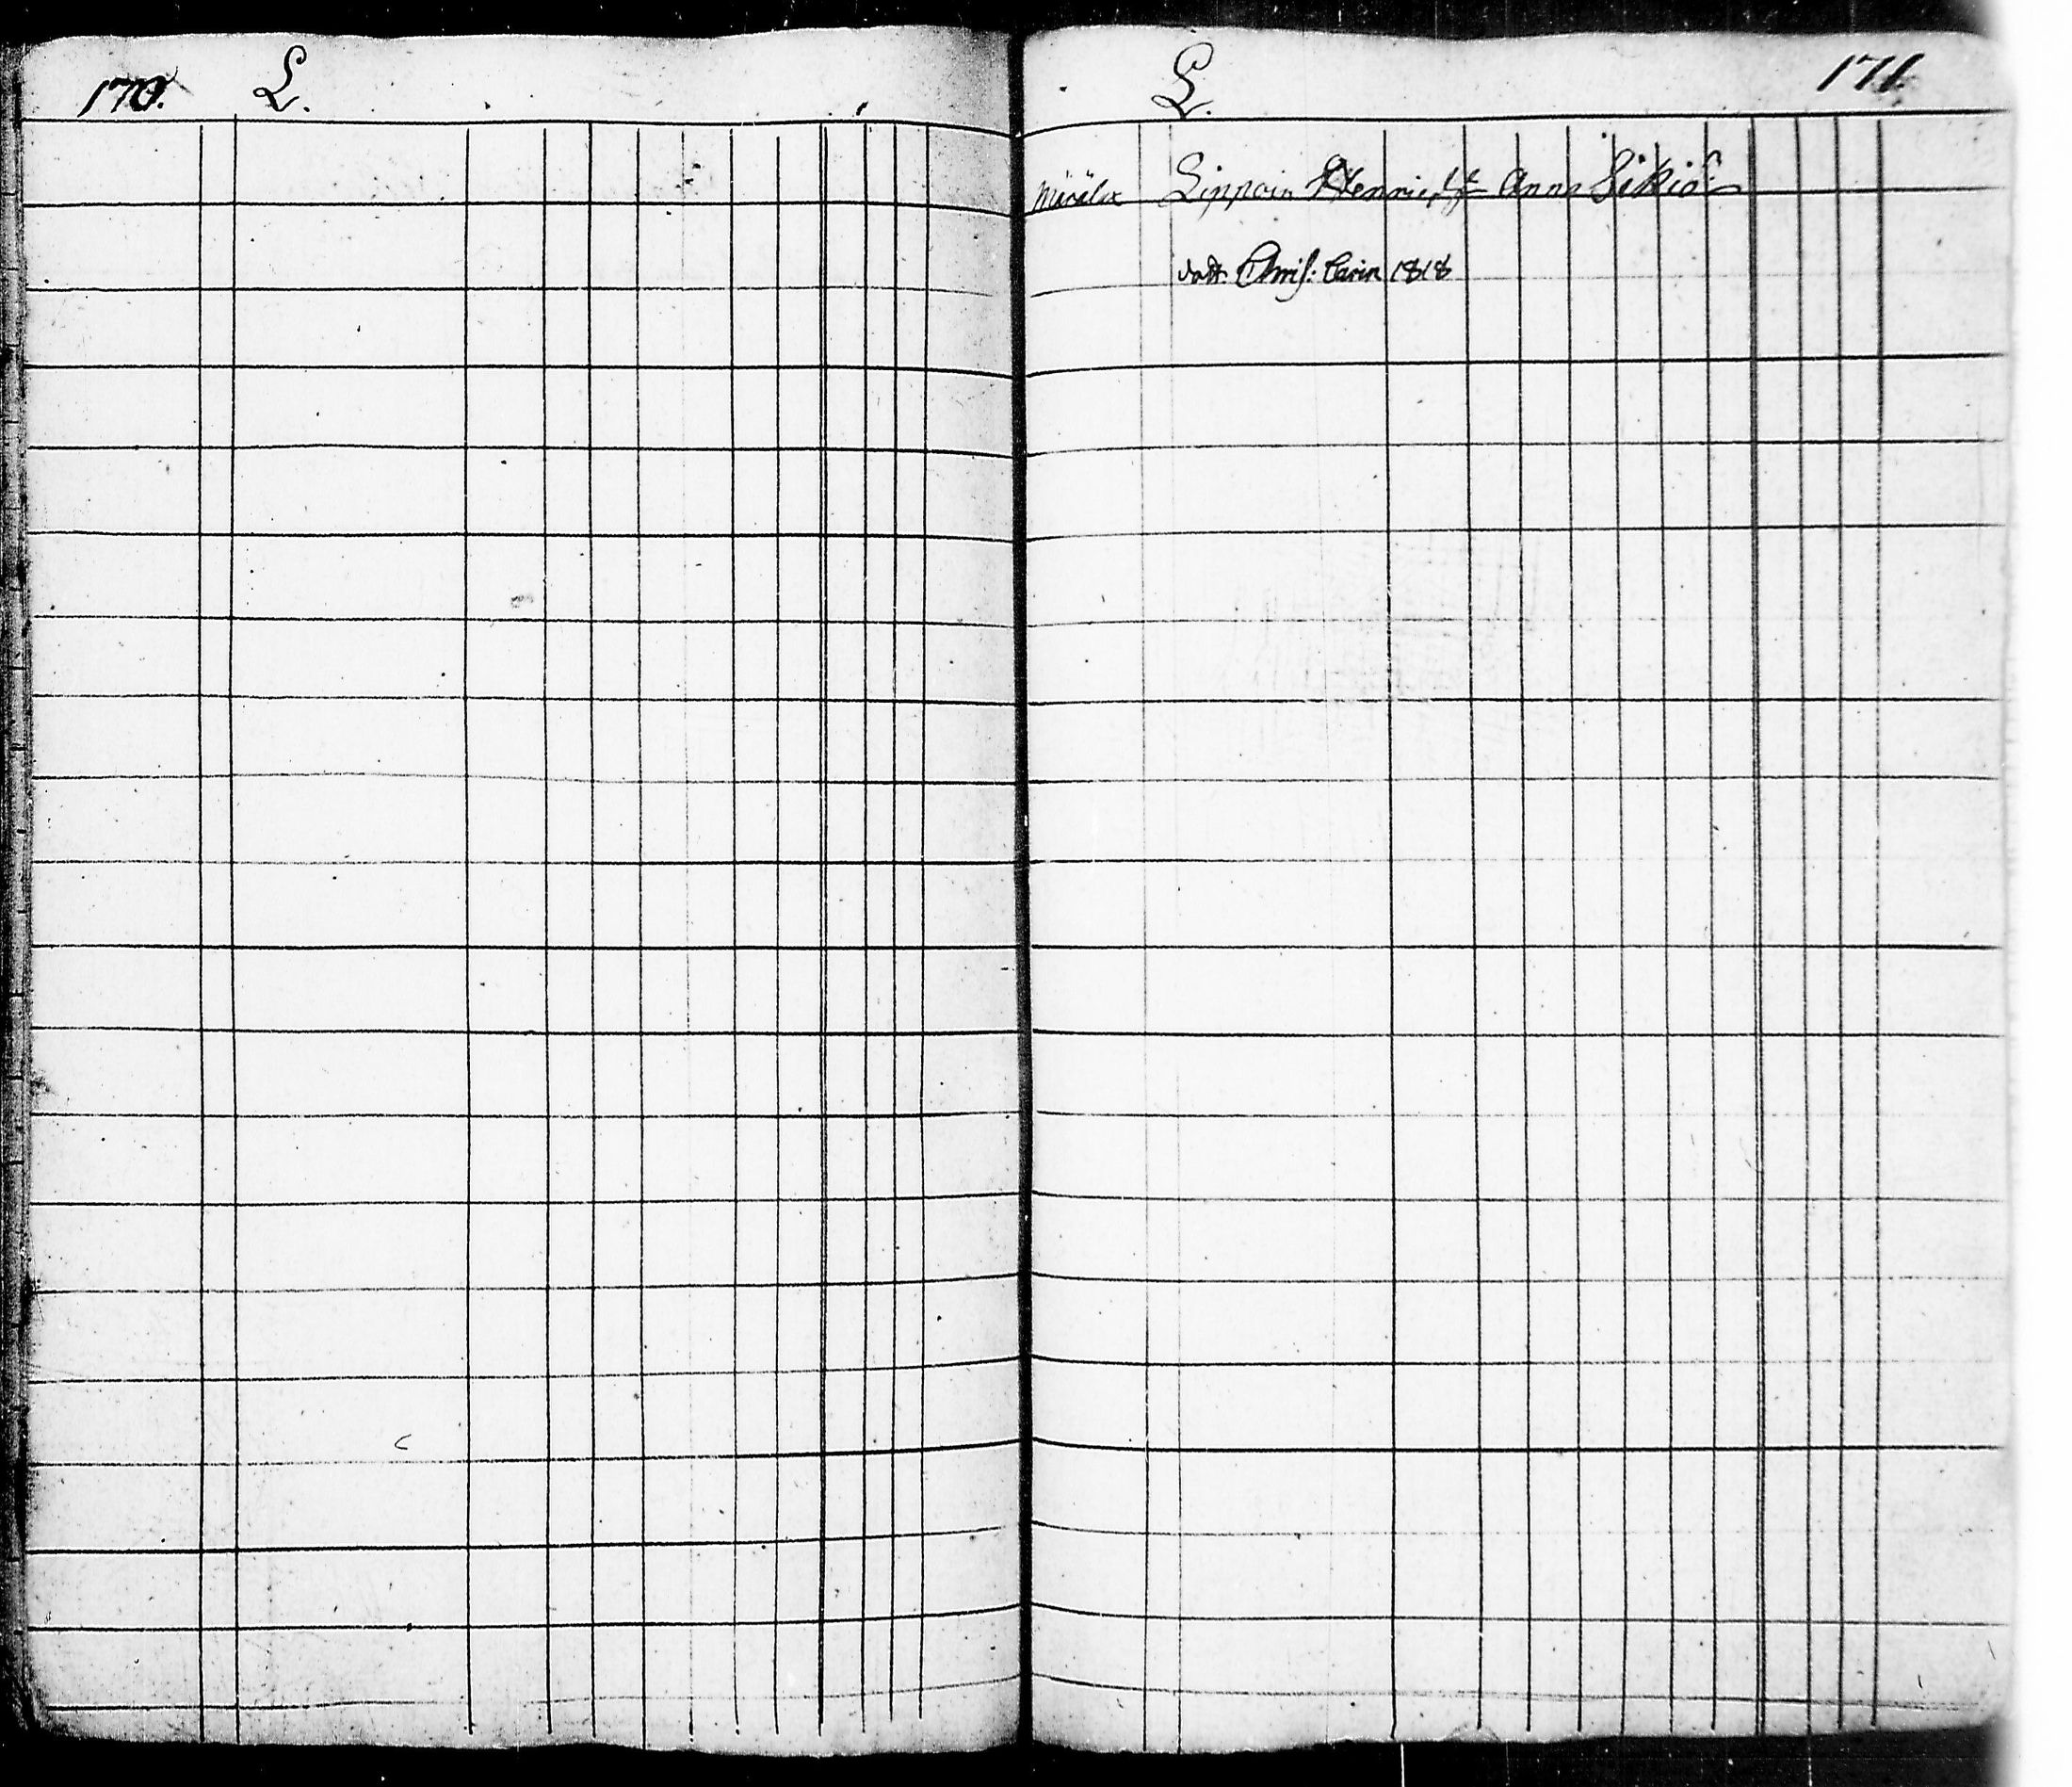 170. L.
L. 171.
Lippoin Henric, h. Anna Sikiö
dott. Chris: Carin 1818